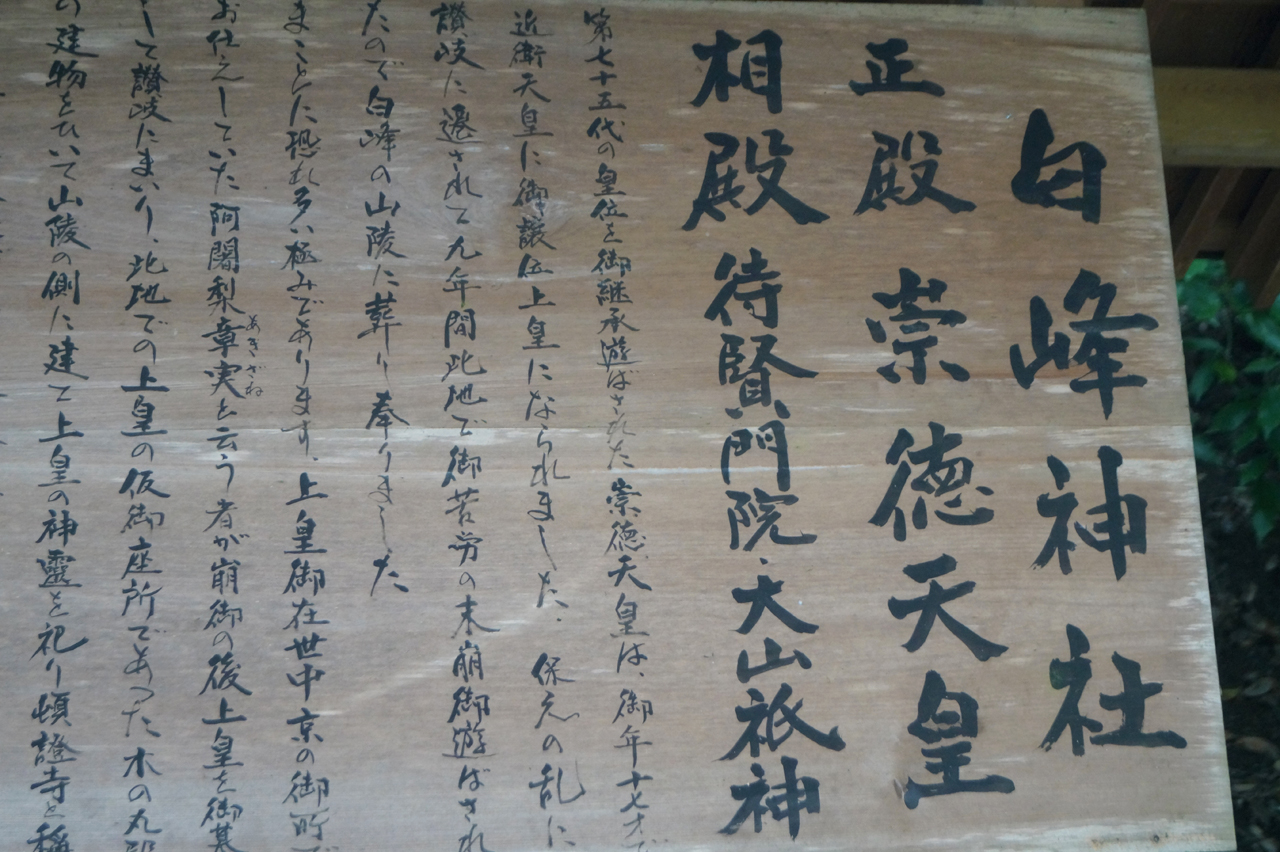 白峰神社
正殿 崇徳天皇
相殿 待賢門院・大山祇神
第七十五代の皇位を御継承遊ばされた崇徳天皇は、御年十七才で
近衛天皇に御譲位上皇になられました、保元の乱に
讃岐に遷されて九年間此地で御苦労の末崩御遊ばされ
たので白峰の山陵に葬り奉りました
まことに恐れ多い極みであります、上皇御在世中京の御所で
お仕えしていた阿闍梨章実と云う者が崩御の後上皇を御慕
あきざね
して讃岐にまいり、此地での上皇の仮御座所であった木の丸殿
の建物をひいて山陵の側に建て上皇の神靈を祀り頓證寺と稱